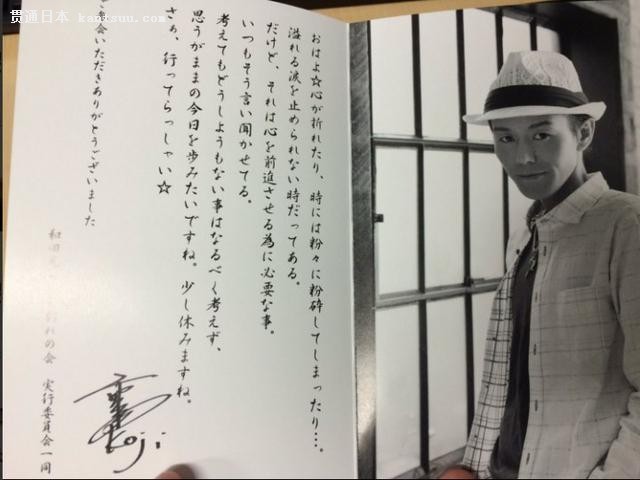 贯通日本 kantsuu.com
おはよ☆心が折れたり、時には粉々に粉砕してしまったり…。
溢れる涙を止められない時だってある。
だけど、それは心を前進させる為に必要な事。
いつもそう言い聞かせてる。
考えてもどうしようもない事はなるべく考えず、
思うがままの今日を歩みたいですね。少し休みますね。
さぁ、行ってらっしゃい☆
会いいただきありがとうございました
和田 別れの会 実行委員会一同
Koji